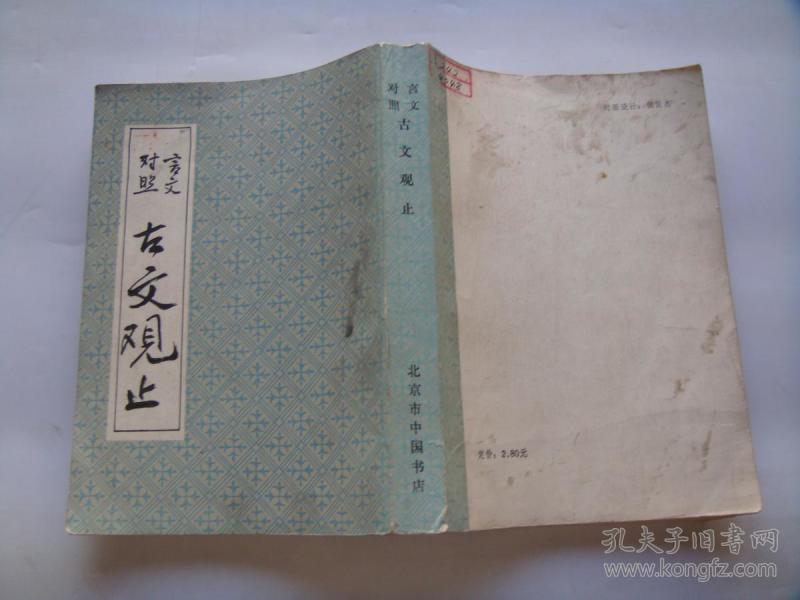 言文
对照
古文观止
言文
对照
古文观止
北京市中国书店
封面设计：
定价：2.80元
孔夫子旧书网
www.kongfz.com